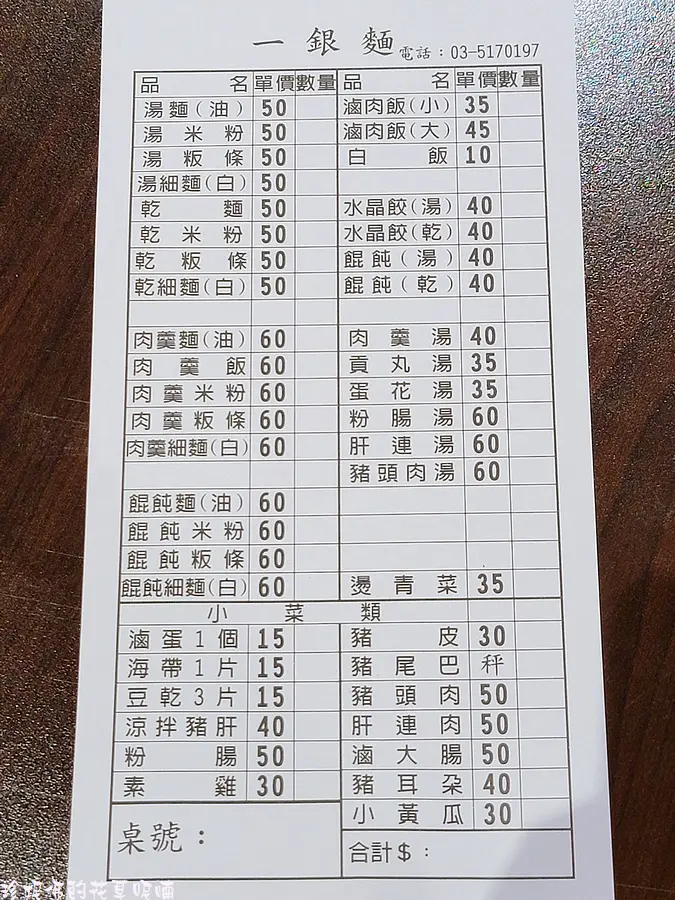 一銀麵 電話：03-5170197
品名 單價 數量 品名 單價 數量
湯麵(油) 50 滷肉飯(小) 35
湯米粉 50 滷肉飯(大) 45
湯粄條 50 白飯 10
湯細麵(白) 50
乾麵 50 水晶餃(湯) 40
乾米粉 50 水晶餃(乾) 40
乾粄條 50 餛飩(湯) 40
乾細麵(白) 50 餛飩(乾) 40
肉羹麵(油) 60 肉羹湯 40
肉羹飯 60 貢丸湯 35
肉羹米粉 60 蛋花湯 35
肉羹粄條 60 粉腸湯 60
肉羹細麵(白) 60 肝連湯 60
豬頭肉湯 60
餛飩麵(油) 60
餛飩米粉 60
餛飩粄條 60
餛飩細麵(白) 60 燙青菜 35
小菜類
滷蛋1個 15 豬皮 30
海帶1片 15 豬尾巴 秤
豆乾3片 15 豬頭肉 50
涼拌豬肝 40 肝連肉 50
粉腸 50 滷大腸 50
素雞 30 豬耳朵 40
小黃瓜 30
桌號：
合計$：